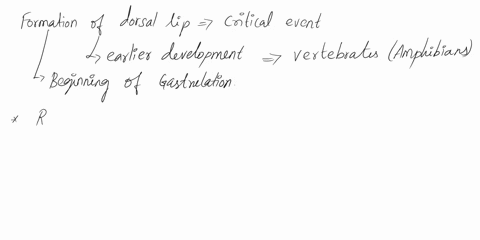 Formation of dorsal lip => Critical event
↳ earlier development => vertebrates (Amphibians)
↳ Beginning of Gastrelation
* R